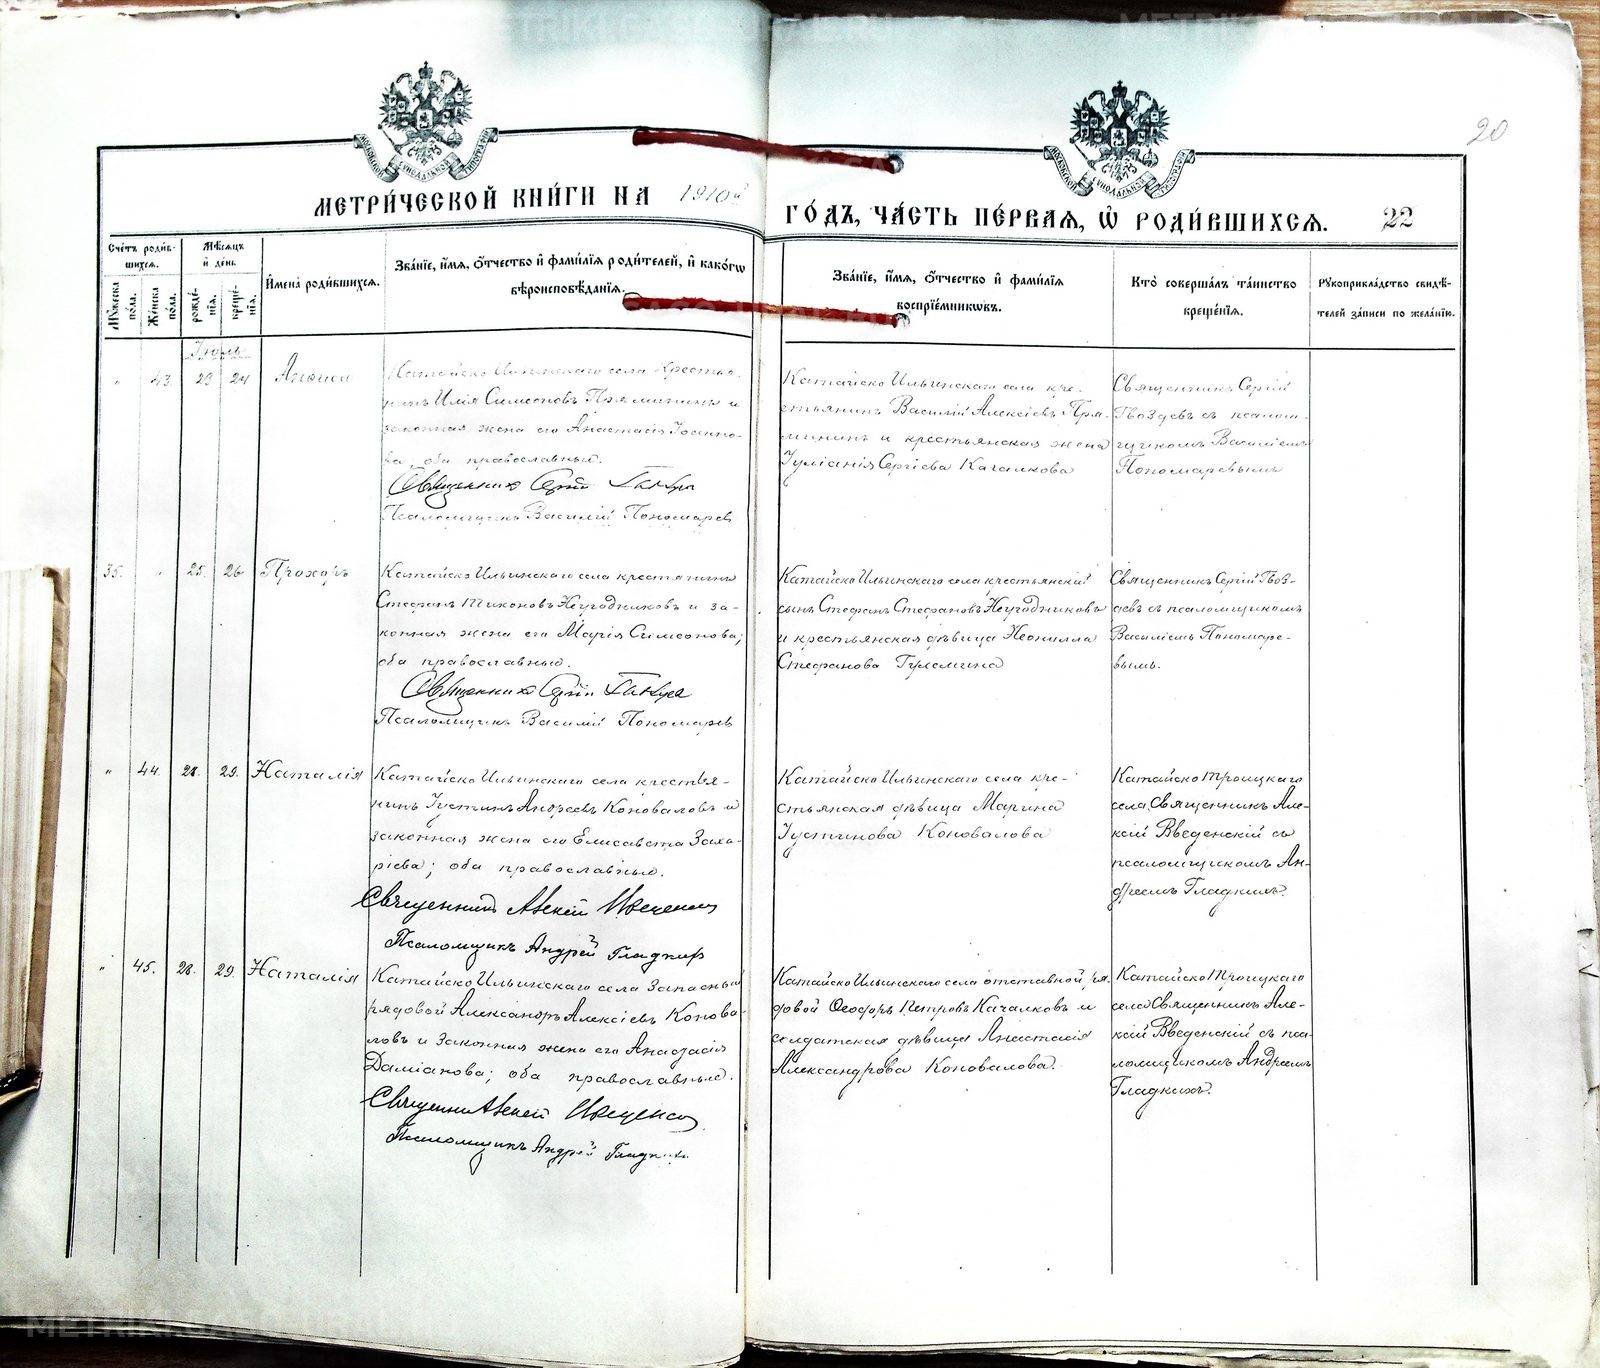 20
МЕТРИ́ЧЕСКОЙ КНИ́ГИ НА 1910й
ГО́ДЪ, ЧА́СТЬ ПЕ́РВАЯ, Ѡ҆ РОДИ́ВШИХСЯ. 22
Сче́тъ роди́в-
шихся.
Мѣ́сяцъ
и҆ де́нь.
Мꙋ́жеска
по́ла.
Же́нска
по́ла.
рожде́-
нія.
креще́-
нія.
И҆мена̀ роди́вшихся.
Зва́нїе, и҆́мя, ѻ҆́тчество и҆ фами́лїя роди́телей, и҆ како́гѡ
вѣроисповѣ́данїя.
Зва́нїе, и҆́мя, ѻ҆́тчество и҆ фами́лїя
воспрїе́мникѡвъ.
Кто̀ соверша́лъ та́инство
креще́нїя.
Рꙋкоприкла́дство свидѣ́-
телей за́писи по жела́нїю.
Іюль
" 43. 23 24 Анѳиса
Катайско Ильинскаго села кресть-
нинъ Илія Симеоновъ Пряминъ и
законная жена его Анастасія Іоанно-
ва; оба православные.
Священникъ Сергій Гвоздевъ
Псаломщикъ Василій Пономарев
Катайско Ильинскаго села кре-
стьянинъ Василій Алексіевъ Пря-
мининъ и крестьянская жена
Іуліанія Сергіева Качалкова
Священникъ Сергій
Гвоздевъ съ псалом-
щикомъ Василіемъ
Пономаревымъ
35. " 25. 26 Прохоръ
Катайско Ильинскаго села крестьянинъ
Стефанъ Тихоновъ Неугодниковъ и за-
конная жена его Марія Симеонова;
оба православные.
Священникъ Сергій Гвоздев
Псаломщикъ Василій Пономарев
Катайско Ильинскаго села крестьянскій
сынъ Стефанъ Стефановъ Неугодниковъ
и крестьянская дѣвица Неонилла
Стефанова
Священникъ Сергій Гвоз-
девъ съ псаломщикомъ
Василіемъ Пономаре-
вымъ.
" 44. 28. 29. Наталія
Катайско Ильинскаго села крестья-
нинъ Іустинъ Андреевъ Коноваловъ и
законная жена его Елисавета Заха-
ріева; оба православные.
Священникъ Алексій Введенскій
Псаломщикъ Андрей Гладких
Катайско Ильинскаго села кре-
стьянская дѣвица Марина
Іустинова Коновалова
Катайско Троицкаго
села Священникъ Але-
ксій Введенскій съ
псаломщикомъ Ан-
дреемъ Гладкимъ.
" 45. 28. 29. Наталія
Катайско Ильинскаго села Запасный
рядовой Александръ Алексіевъ Конова-
ловъ и Законная жена его Анастасія
Даміанова; оба православные.
Священник Алексій Введенск
Псаломщикъ Андрей Гладких
Катайско Ильинскаго села отставной ря-
довой Ѳеодоръ Петровъ Качалковъ и
солдатская дѣвица Анастасія
Александрова Коновалова.
Катайско Троицкаго
села Священникъ Але-
ксій Введенскій съ пса-
ломщикомъ Андреемъ
Гладкихъ.